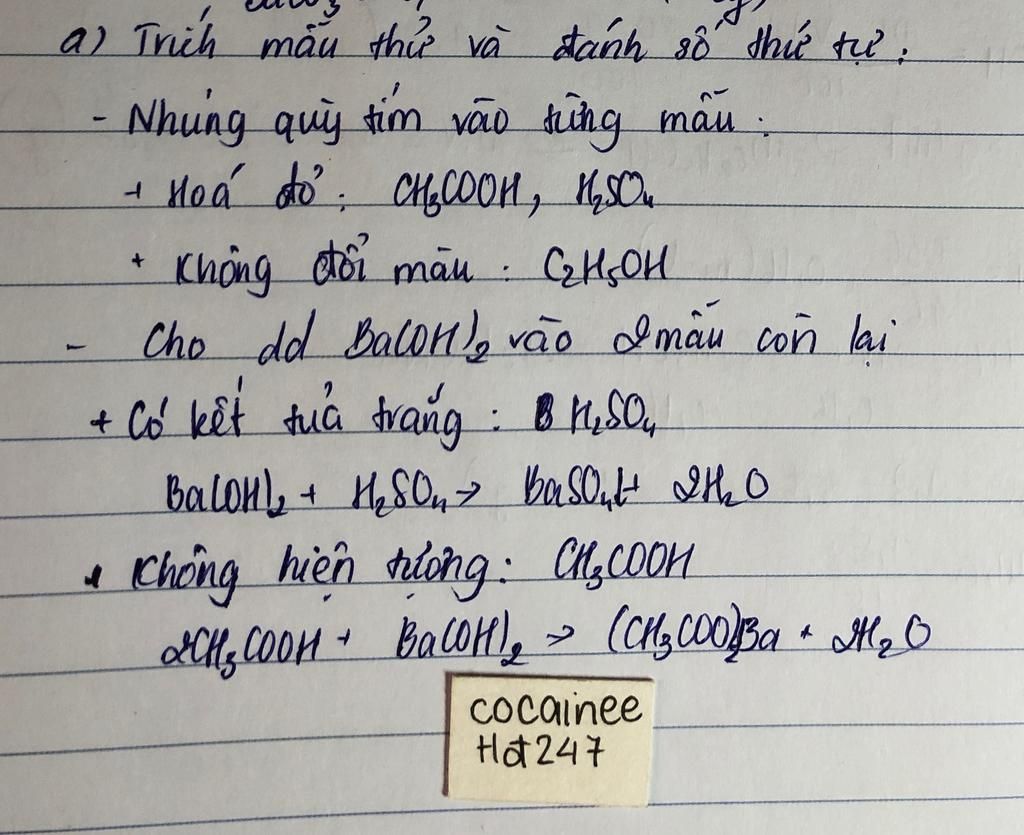 a) Trích mẫu thử và đánh số thứ tự:
- Nhúng quỳ tím vào từng mẫu:
+ Hoá đỏ: CH₃COOH, H₂SO₄
+ Không đổi màu: C₂H₅OH
- Cho dd Ba(OH)₂ vào 2 mẫu còn lại
+ Có kết tủa trắng: H₂SO₄
Ba(OH)₂ + H₂SO₄ → BaSO₄↓ + 2H₂O
+ Không hiện tượng: CH₃COOH
2CH₃COOH + Ba(OH)₂ → (CH₃COO)₂Ba + 2H₂O
cocainee
Hđ247